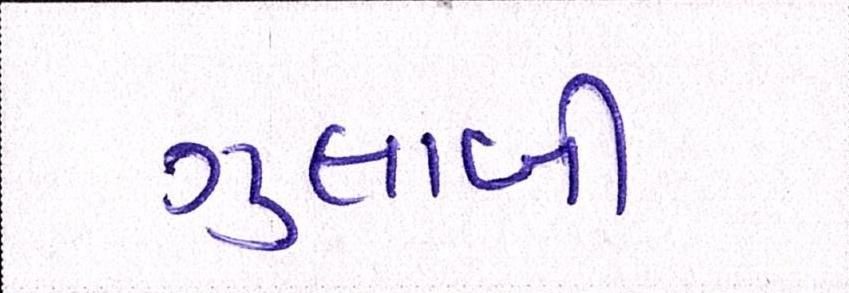 ગુલાબી